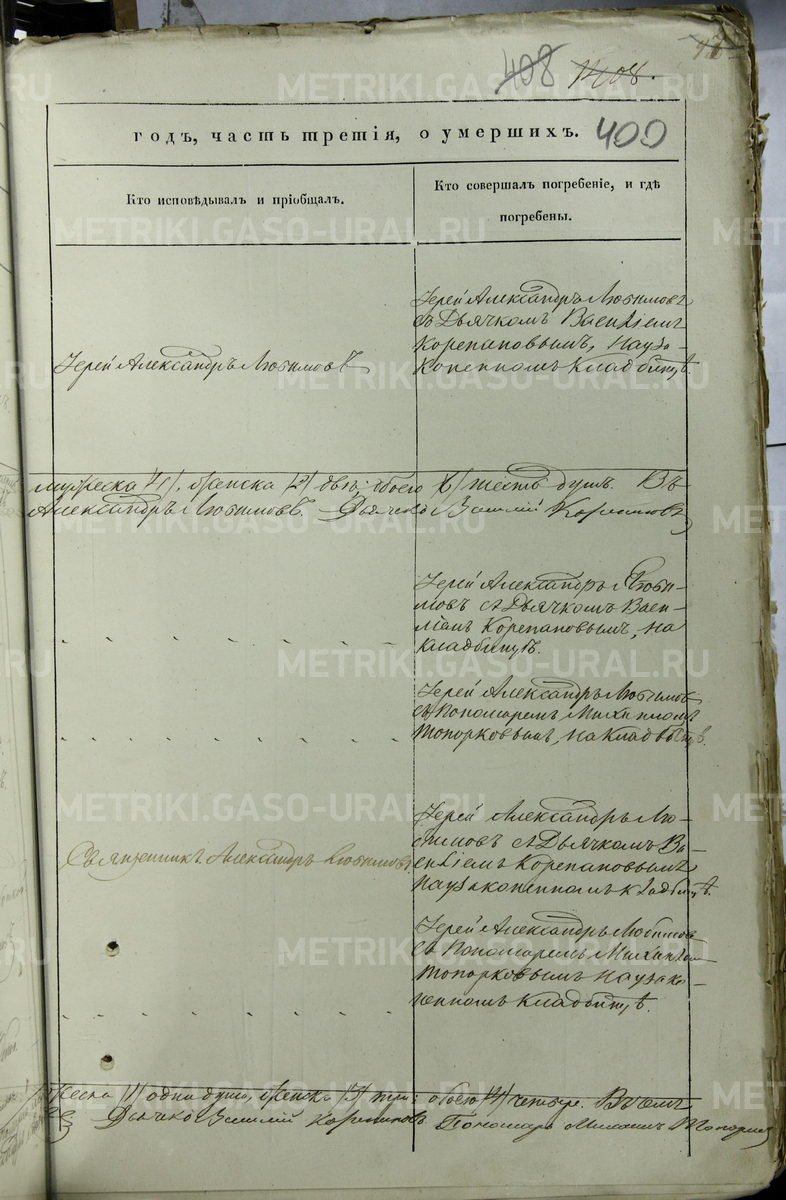 408 1408.
годъ, часть третія, о умершихъ. 400
Кто исповѣдывалъ и пріобщалъ.
Кто совершалъ погребеніе, и гдѣ
погребены.
Іерей Александръ Любимовъ
Іерей Александръ Любимовъ
съ Дьячкомъ Василіемъ
Корепановымъ, на узо-
коненномъ кладбищѣ
мужеска /4/, женска /2/ двѣ; обоего /6/ шесть душъ. Въ
Александръ Любимовъ. Дьячекъ Василій Корепановъ
Іерей Александръ Люби-
мовъ съ Дьячкомъ Васи-
ліемъ Корепановымъ, на
кладбищѣ.
Іерей Александръ Любимовъ
съ Пономаремъ Михаиломъ
Топорковымъ, на кладбищѣ.
Священникъ Александръ Любимовъ
Іерей Александръ Лю-
бимовъ съ Дьячкомъ Ва-
силіемъ Корепановымъ
на узаконенномъ кладбищѣ.
Іерей Александръ Любимовъ
съ Пономаремъ Михаиломъ
Топорковымъ на узако-
ненномъ кладбищѣ.
/1/ одна душа, женска /3/ три; обоего /4/ четыре. Въ чемъ
Дьячекъ Василій Корепановъ Пономарь Михаилъ
METRIKI.GASO-URAL.RU